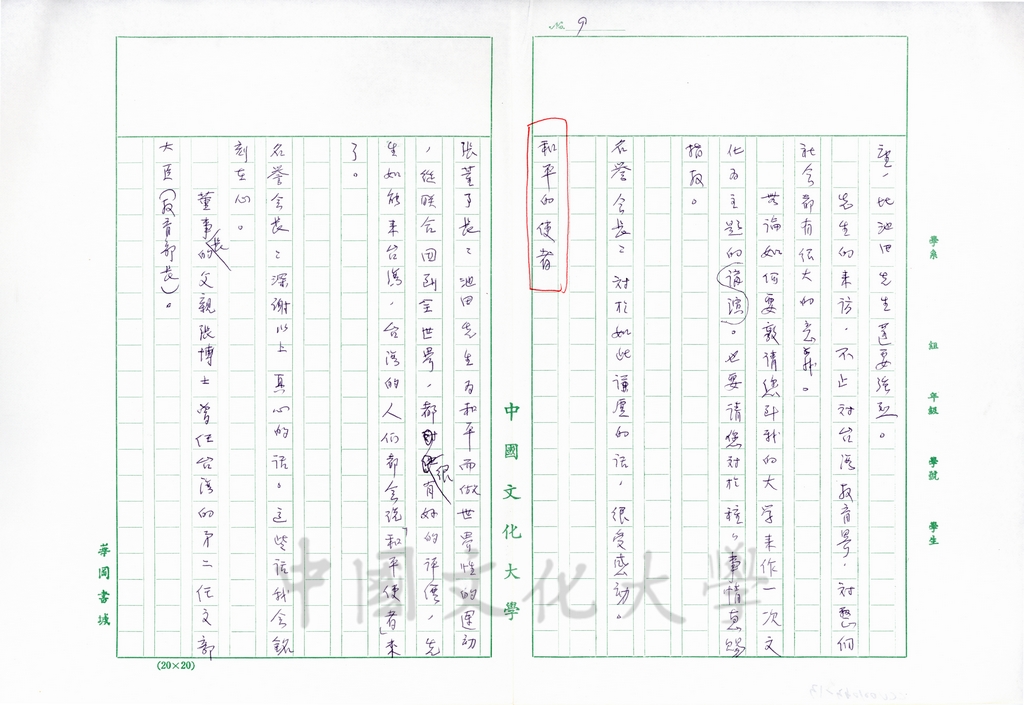 No. 9
學系 組 年級 學號 學生
望,比池田先生還要強烈。
先生的來訪,不止对台湾教育界,对整個
社会都有很大的意義。
無論如何要敦請您到我的大学来作一次文
化为主题的演講。也要請您对於種々事情惠賜
指教。
名誉会長:对於如此謙虛的话,很受感动。
和平的使者
中國文化大學
張董事長:池田先生为和平而做世界性的運动
,從联合国到全世界,都很有好的評價,先
生如能来台湾,台湾的人們都会说「和平使者」来
了。
名誉会長:深謝以上真心的话。这些话我会銘
刻在心。
董事長的父親張博士曾任台湾的第二任文部
大臣(教育部長)。
華岡書城
(20×20)
中國文化大學